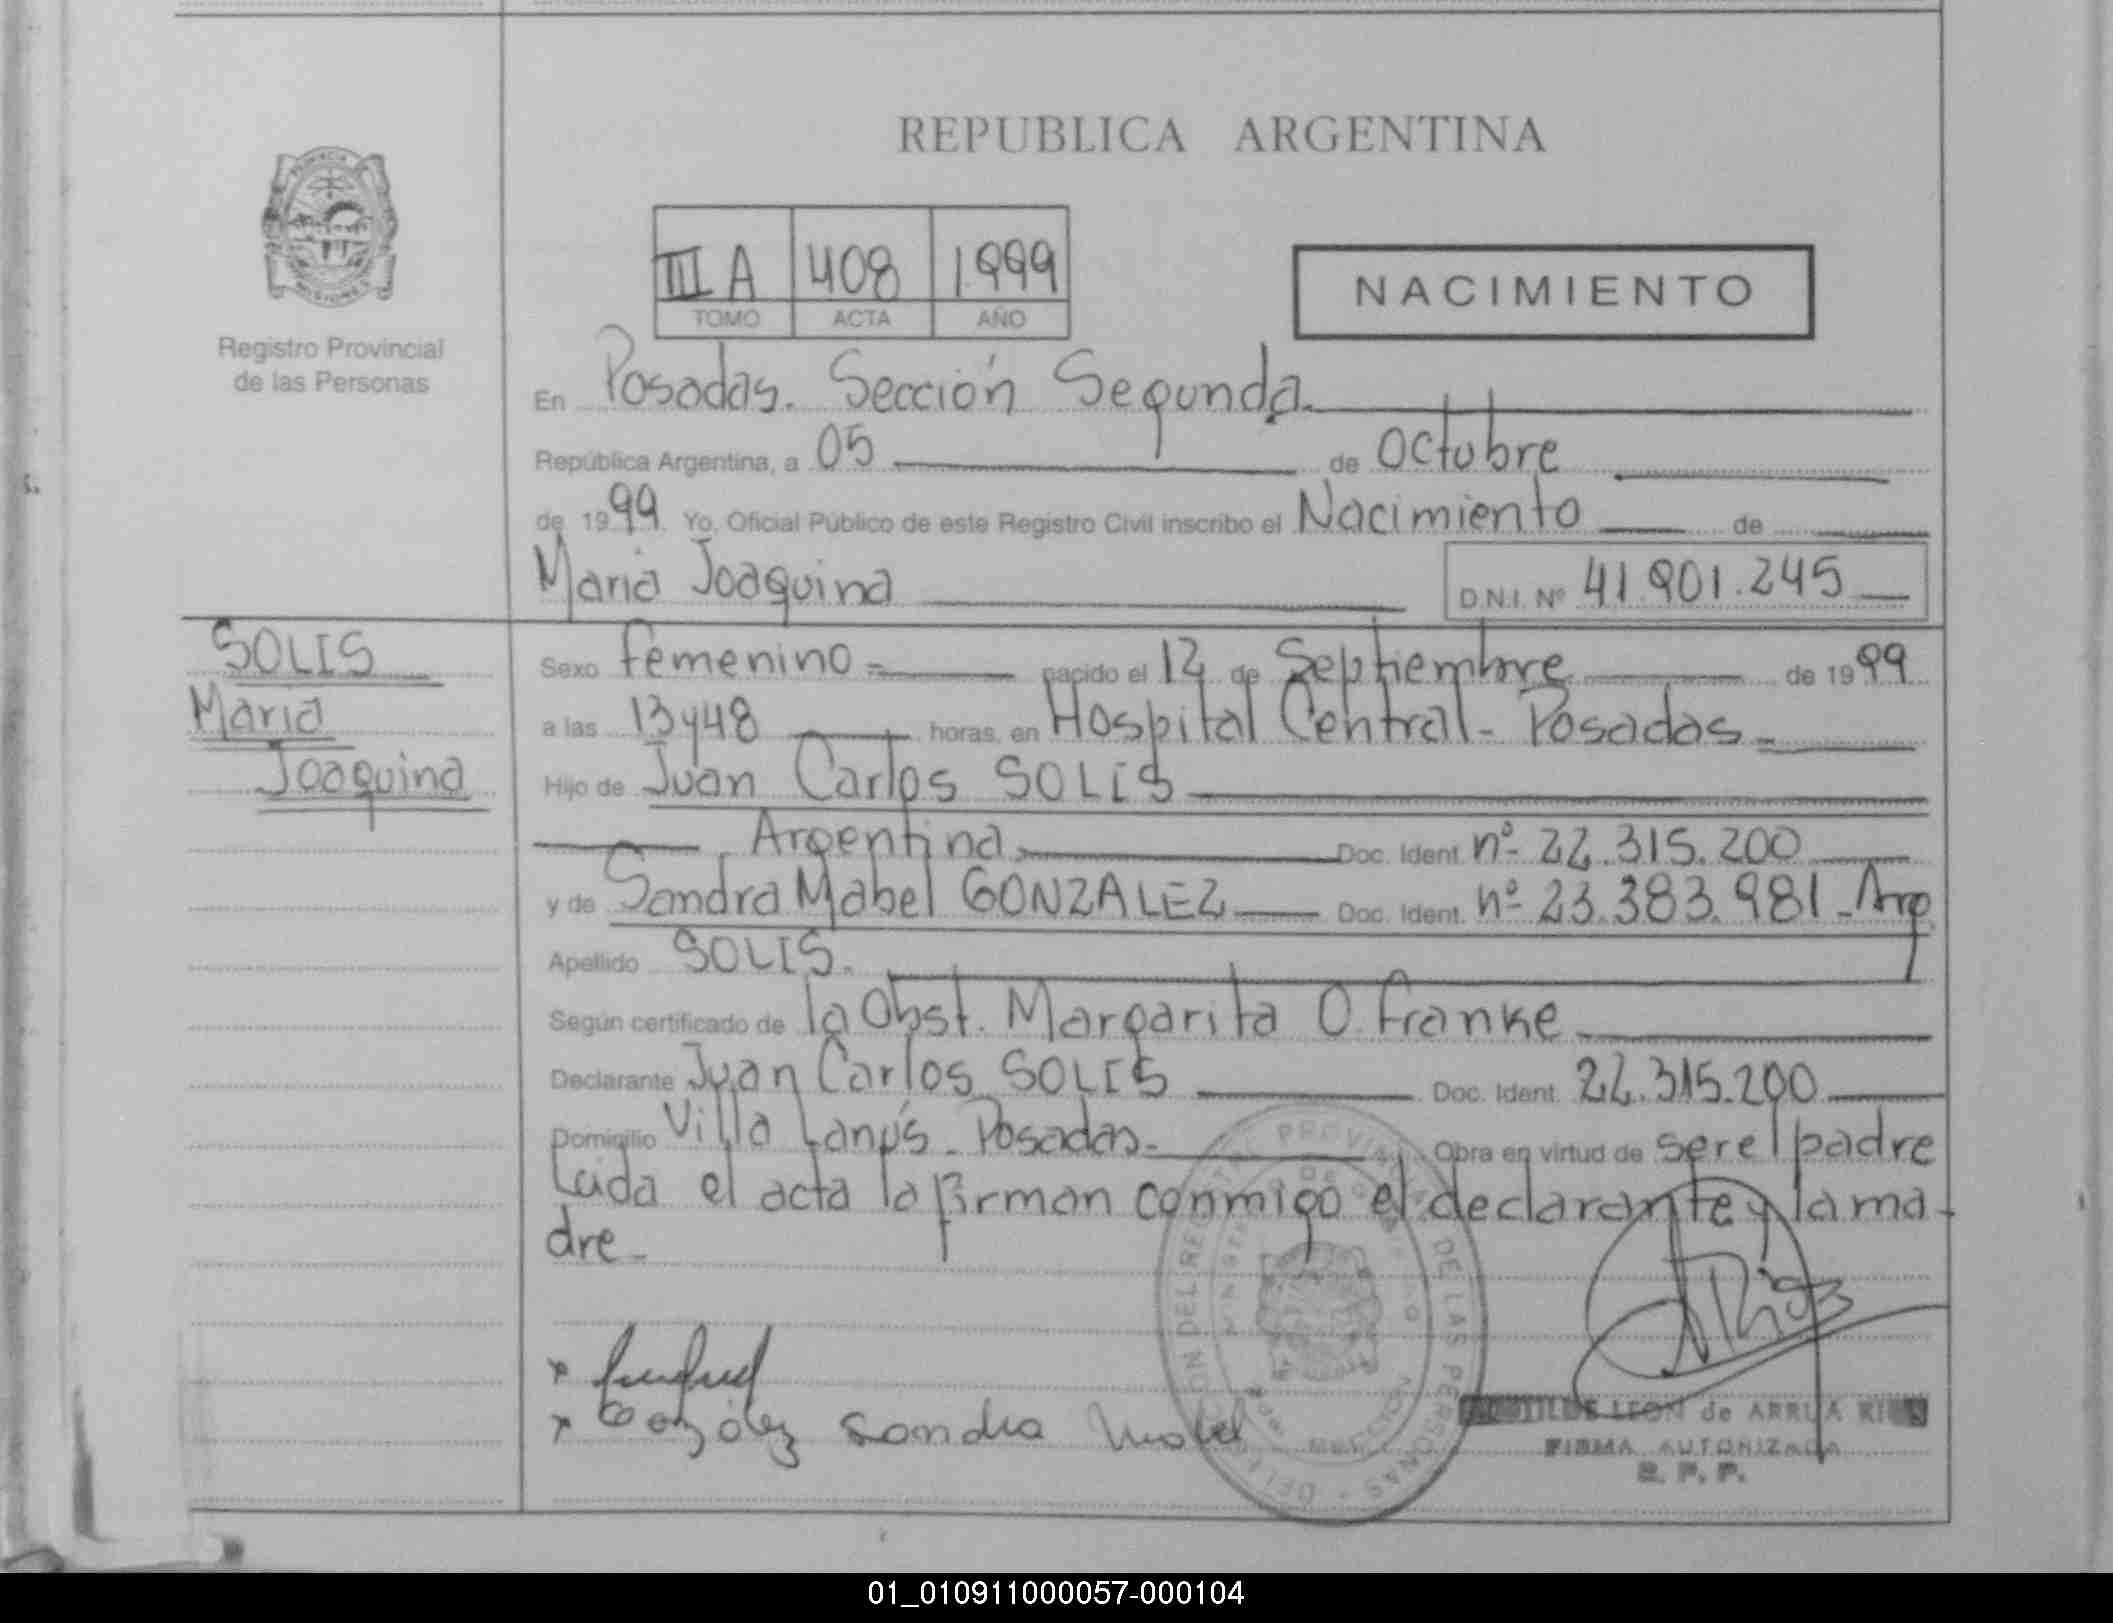 REPUBLICA ARGENTINA
III A 408 1.999
TOMO ACTA AÑO
NACIMIENTO
Registro Provincial
de las Personas
En Posadas. Sección Segunda.
República Argentina, a 05 de Octubre
de 1999. Yo, Oficial Público de este Registro Civil inscribo el Nacimiento de
Maria Joaquina
D.N.I. Nº 41.901.245
SOLIS
Maria
Joaquina
Sexo femenino nacido el 12 de Septiembre de 1999
a las 13 y 48 horas, en Hospital Central - Posadas -
Hijo de Juan Carlos SOLIS
Argentina Doc. Ident. nº 22.315.200
y de Sandra Mabel GONZALEZ Doc. Ident. nº 23.383.981 - Arg
Apellido SOLIS.
Según certificado de la Obst. Margarita O. Franke
Declarante Juan Carlos SOLIS Doc. Ident. 22.315.200
Domicilio Villa Lanús - Posadas - Obra en virtud de ser el padre
Leida el acta la firman conmigo el declarante y la ma-
dre -
Gozález Sandra Mabel
LEON de ARRUA
FIRMA AUTORIZADA
R. P. P.
01_010911000057-000104